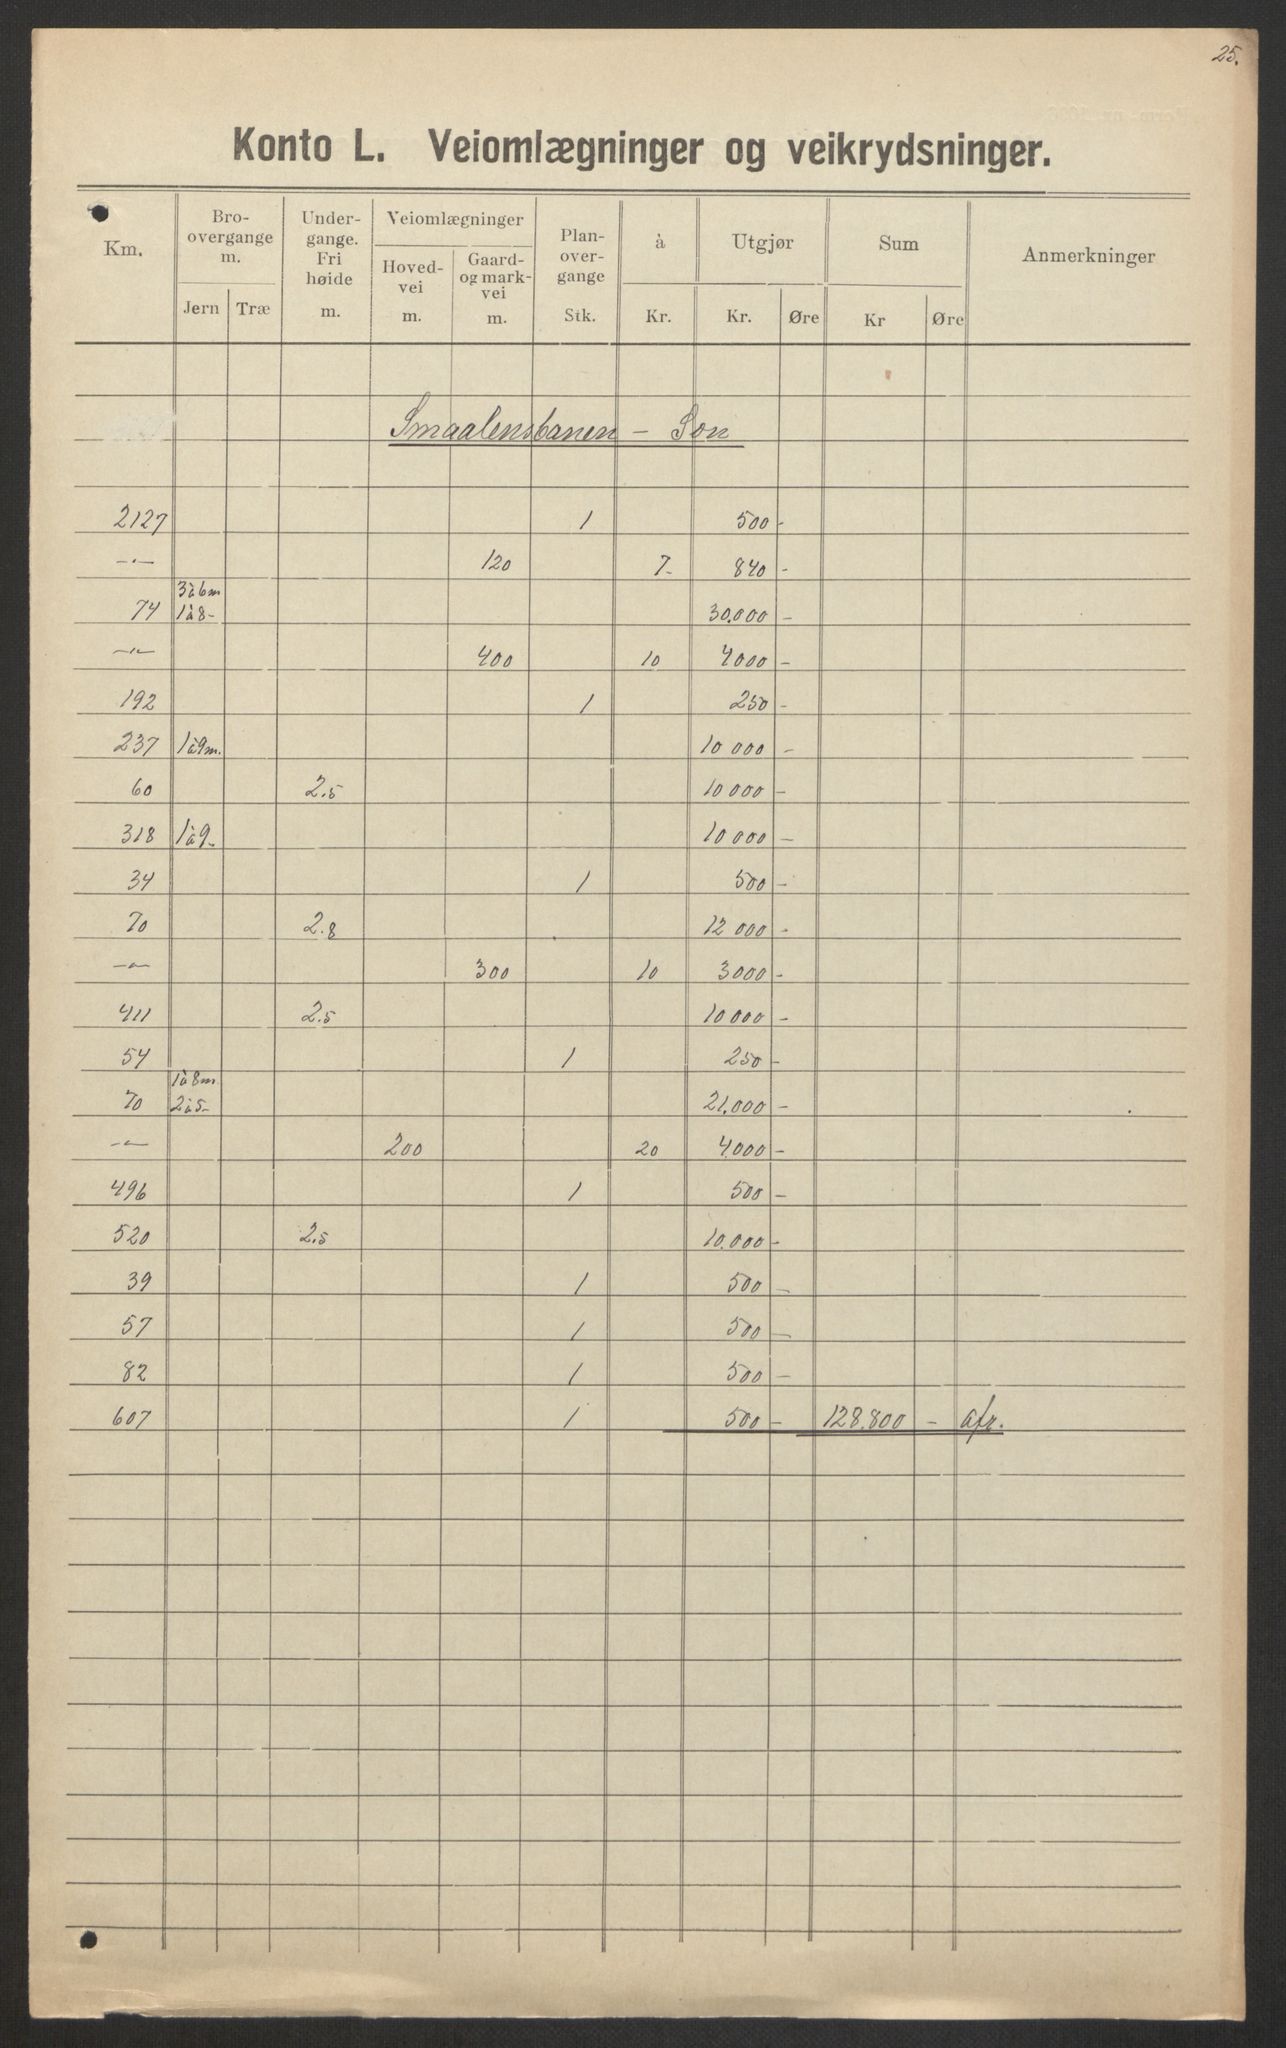 25.
Konto L. Veiomlægninger og veikrydsninger.
Km. Bro-overgange m. Jern Træ Under-gange. Fri høide m. Veiomlægninger Hoved-vei m. Gaard- og mark-vei m. Plan-over-gange Stk. à Kr. Utgjør Kr. Øre Sum Kr Øre Anmerkninger
Smaalensbanen – Son
2127 1 500 -
-"- 120 7- 840 -
3 à 6m
74 1 à 8- 30.000 -
-"- 400 10 4000 -
192 1 250 -
237 1 à 9m. 10 000 -
60 2.5 10 000 -
318 1 à 9- 10 000 -
34 1 500 -
70 2.8 12 000 -
-"- 300 10 3000 -
411 2.5 10 000 -
54 1 250 -
1 à 8m
70 2 à 5- 21.000 -
-"- 200 20 4.000 -
496 1 500 -
520 2.5 10.000 -
39 1 500 -
57 1 500 -
82 1 500 -
607 1 500 - 128.800 - afr.